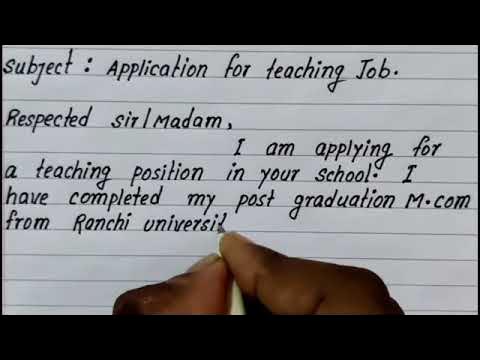 Subject : Application for teaching Job.
Respected Sir/Madam,
I am applying for
a teaching position in your school. I
have completed my post graduation M.com
from Ranchi universit